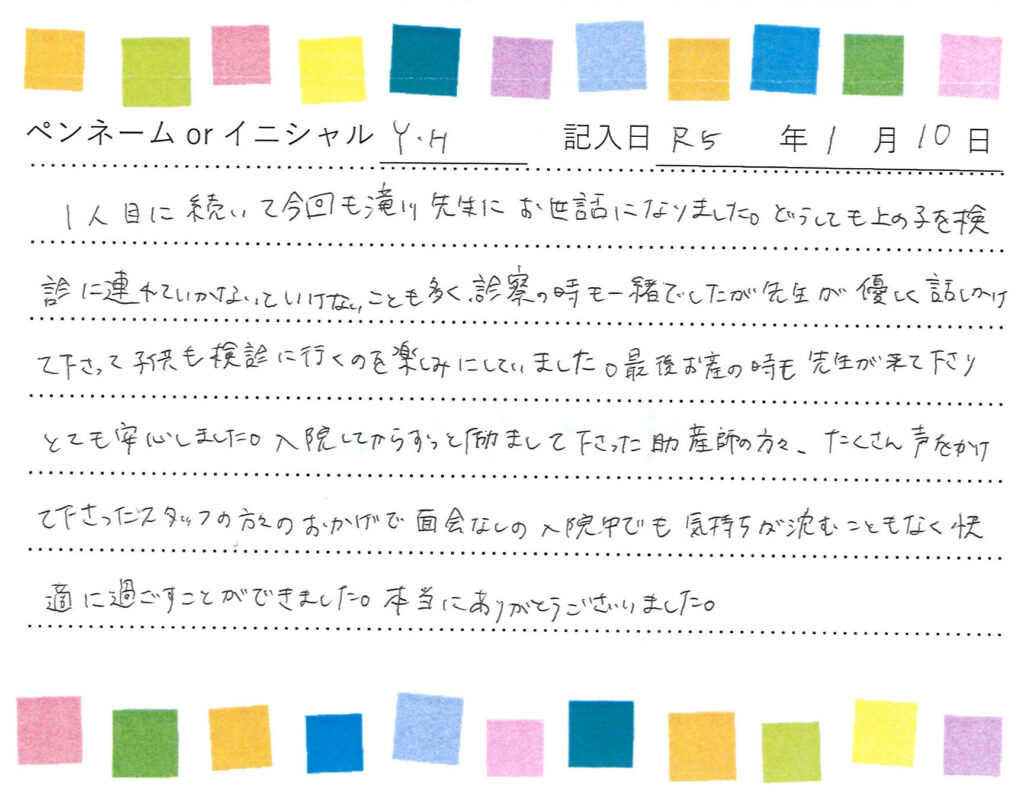 ペンネーム or イニシャル Y.H 記入日 R5 年 1 月 10 日
1人目に続いて今回も滝川先生にお世話になりました。どうしても上の子を検
診に連れていかないといけないことも多く、診察の時も一緒でしたが先生が優しく話しかけ
て下さって子供も検診に行くのを楽しみにしていました。最後お産の時も先生が来て下さり
とても安心しました。入院してからずっと励まして下さった助産師の方々、たくさん声をかけ
て下さったスタッフの方々のおかげで面会なしの入院中でも気持ちが沈むこともなく快
適に過ごすことができました。本当にありがとうございました。